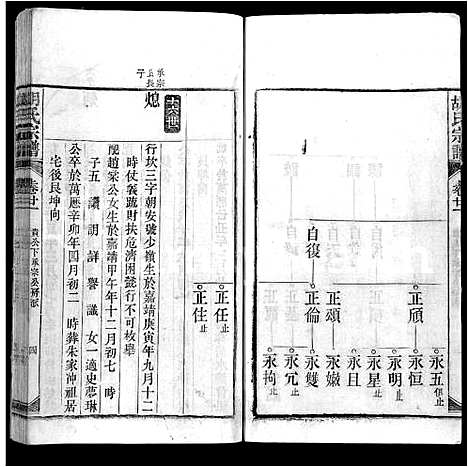 胡氏宗譜
卷廿一
自復
正頎
正頌
正倫
永五 俱止
永恒
永明 止
永星 止
永且
永嫩
永雙
永宂 止
永拘 止
正任 止
正佳 止
十六世
承宗
長子
熄
行坎三字朝安號少嶺生於嘉靖庚寅年九月十二
時仗義疏財扶危濟困懿行不可枚舉
配趙家公女生於嘉靖甲午年十二月初七 時
子五 讓 訓 詳 譽 議 女一適史夢琳
公卒於萬歷辛卯年四月初二 時葬朱家沖祖居
宅後艮坤向
胡氏宗譜
卷廿一
貴公下承宗
四